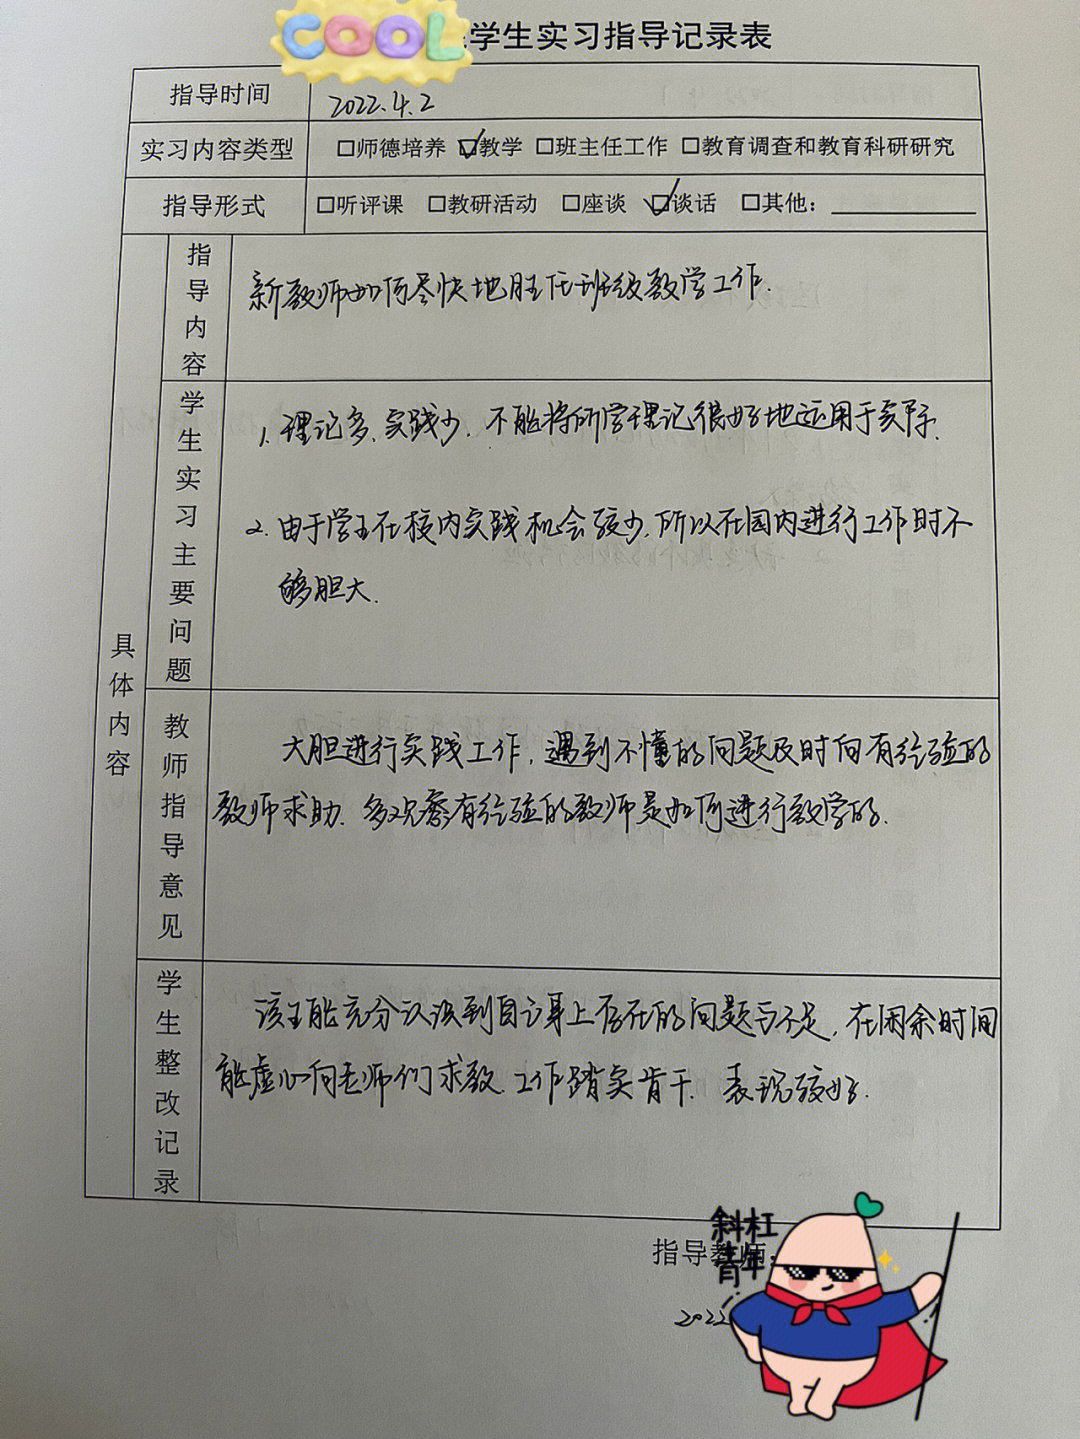 COOL
学生实习指导记录表
指导时间 2022.4.2
实习内容类型 □师德培养 ☑教学 □班主任工作 □教育调查和教育科研研究
指导形式 □听评课 □教研活动 □座谈 ☑谈话 □其他：
具体内容
指导内容
新教师如何尽快地胜任班级教学工作.
学生实习主要问题
1. 理论多、实践少, 不能将所学理论很好地运用于实际.
2. 由于学生在校内实践机会较少, 所以在园内进行工作时不
够胆大.
教师指导意见
大胆进行实践工作, 遇到不懂的问题及时向有经验的
教师求助. 多观察有经验的教师是如何进行教学的.
学生整改记录
该生能充分认识到自身上存在的问题与不足, 在闲余时间
能虚心向老师们求教. 工作踏实肯干. 表现较好.
指导教师:
斜杠
青年
2022